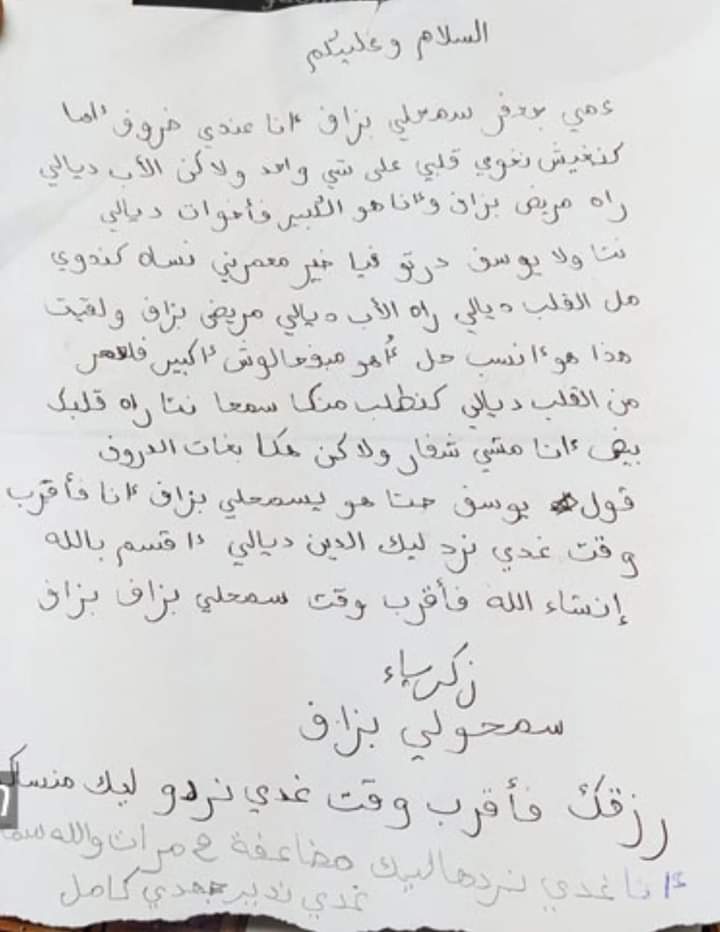 السلام وعليكم
عمي جعفر سمحلي بزاف أنا عندي ضروف أما
كنغيش نغوي قلبي على شي واحد ولاكن الأب ديالي
راه مريض بزاف وأنا هو الكبير فأخوات ديالي
نتا ولا يوسف درتو فيا خير معمرني نساه كندوي
مل القلب ديالي راه الأب ديالي مريض بزاف ولقيت
هذا هو أنسب حل أُهو مبقحالوش أكبير
من القلب ديالي كنطلب منكا سمعا نتا راه قلبك
بيض أنا مشي شفار ولاكن هكا بغات الدروف
قول يوسف حتا هو يسمحلي بزاف أنا فأقرب
وقت غدي نرد ليك الدين ديالي اقسم بالله
إنشاء الله فأقرب وقت سمحلي بزاف بزاف
زكرياء
سمحولي بزاف
رزقك فأقرب وقت غدي نردو ليك
أنا غدي نردها ليك مضاعفة مرات والله
غدي ندير جهدي كامل